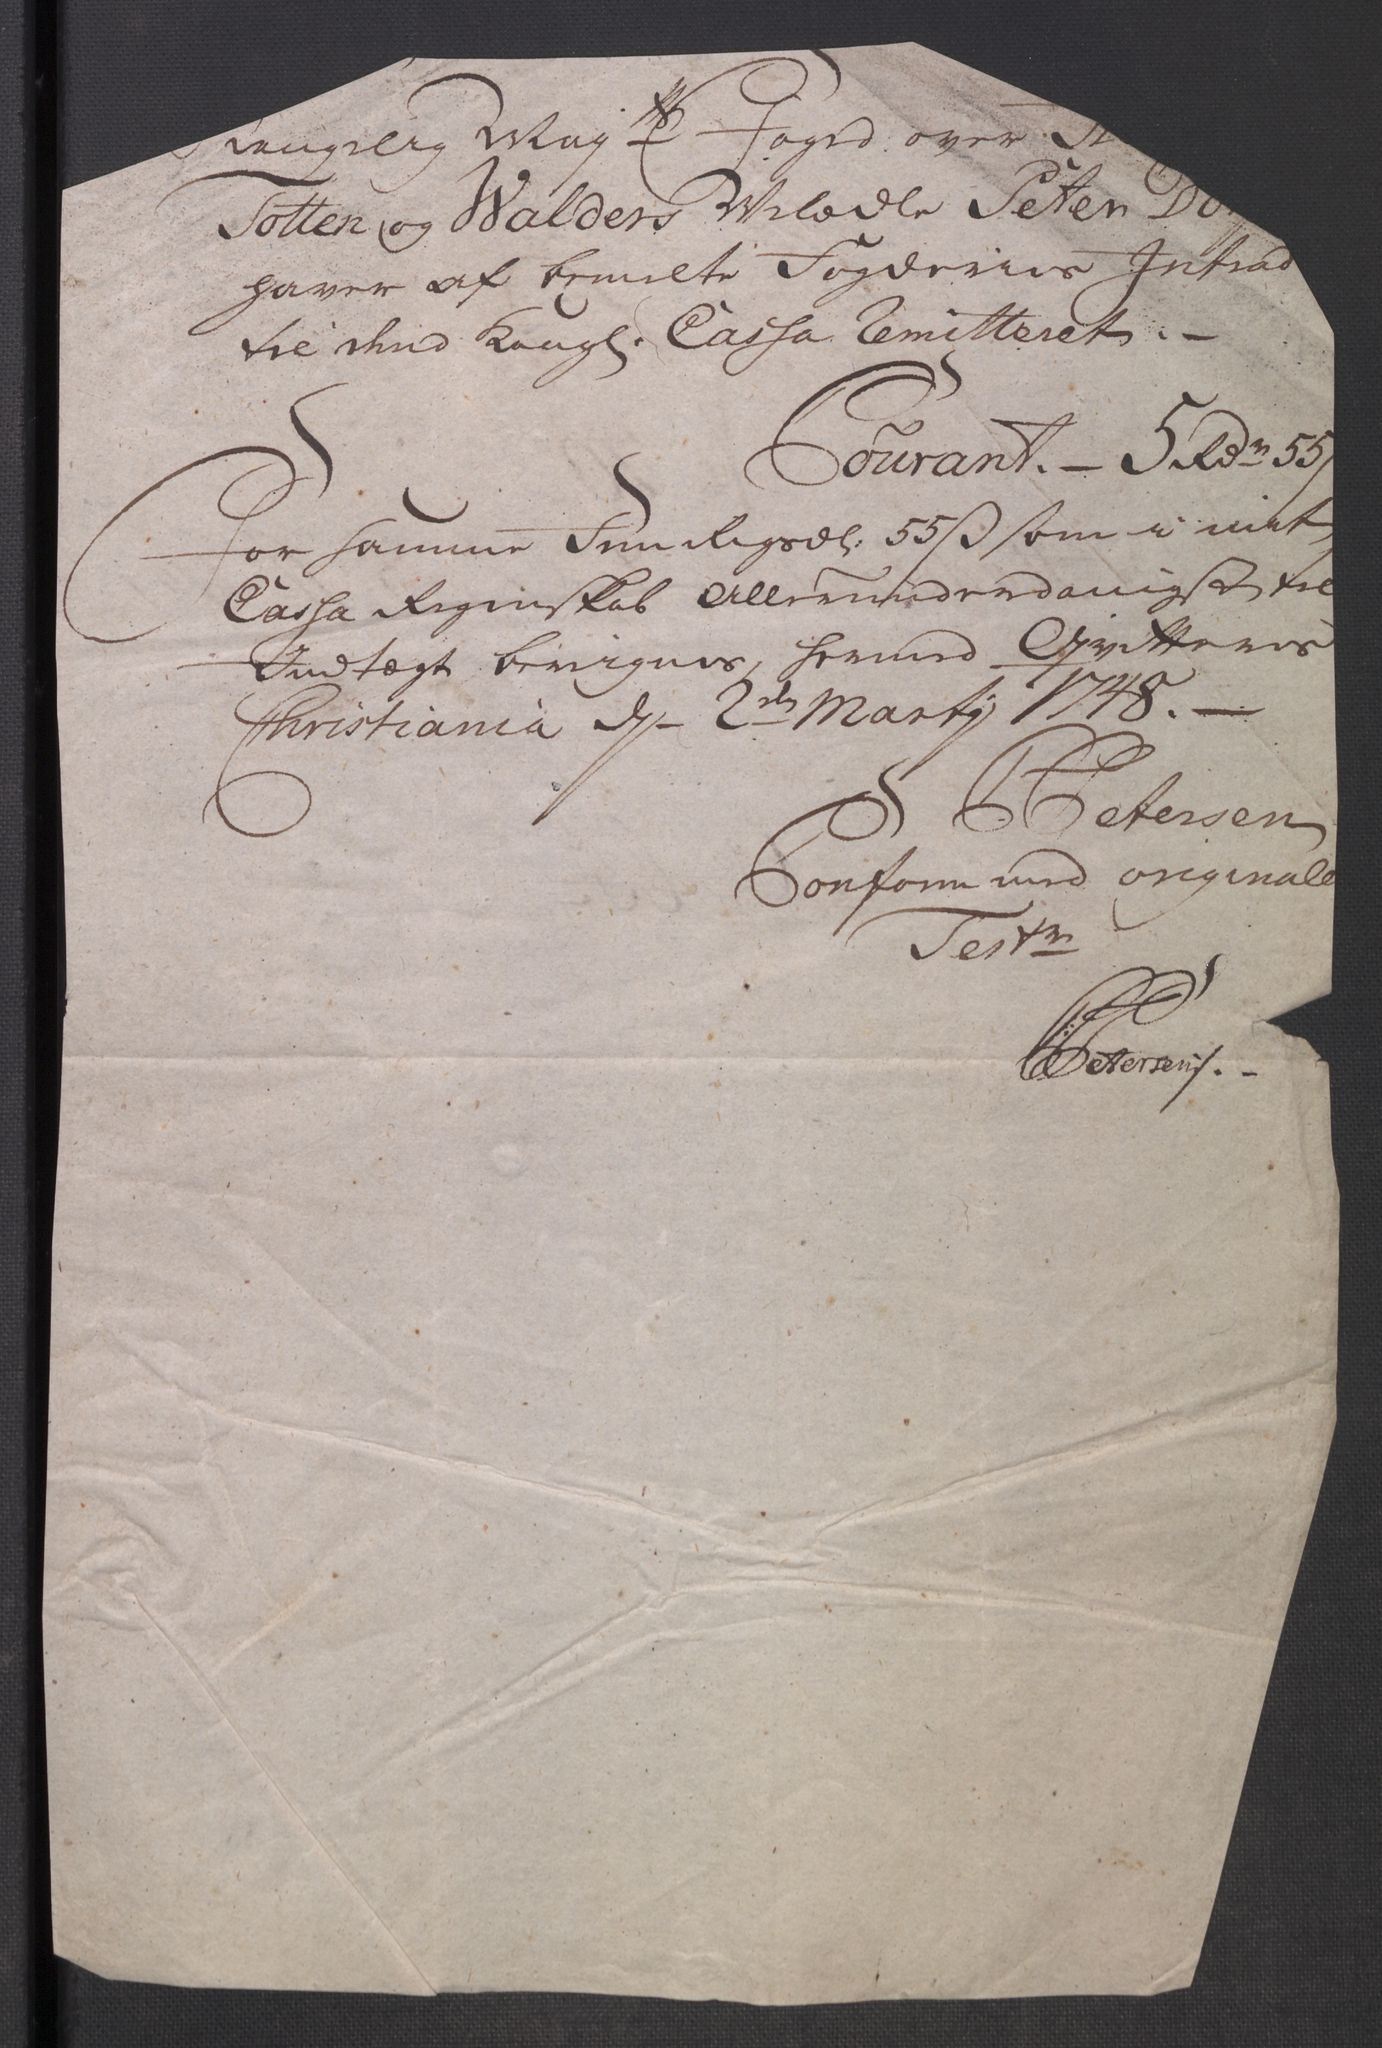 Kongelig May:ts Foged over
Totten og Walders Velædle Peter
haver af bemelte Fogderies Intrad
til dend Kongl. Cassa Remitteret. –
Courant. – 5 Rdr 55ß
For samme Fem Rigsdl: 55ß som i mit
Cassa Regenskab Allerunderdanigst til
Indtægt beregnes, hermed Qvitteres
Christiania d. 2den Martij 1748. –
P Petersen
Conform med originale
Test:r
P Petersen. –